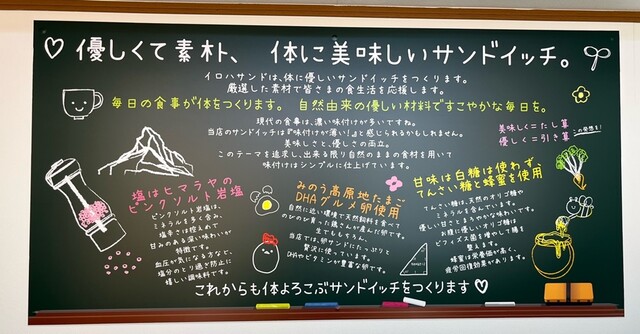 ♡ 優しくて素朴、 体に美味しいサンドイッチ。
イロハサンドは、体に優しいサンドイッチをつくります。
厳選した素材で皆さまの食生活を応援します。
毎日の食事が体をつくります。 自然由来の優しい材料ですこやかな毎日を。
現代の食事は、濃い味付けが多いですね。
当店のサンドイッチは『味付けが薄い!』と感じられるかもしれません。
美味しさと、優しさの両立。
このテーマを追求し、出来る限り自然のままの食材を用いて
味付けはシンプルに仕上げています。
美味しく=たし算
優しく=引き算
この発想を!
塩はヒマラヤの
ピンクソルト岩塩
ピンクソルト岩塩は、
ミネラルを多く含み、
塩辛さは控えめで
甘みのある深い味わいが
特徴です。
血圧が気になる方など、
塩分のとり過ぎ防止に
嬉しい調味料です。
みのう高原地たまご
DHAグルメ卵使用
自然に近い環境で天然飼料を食べて
のびのび育った鶏さんが産んだ卵です。
生でももちろん、
当店では、卵サンドにたっぷりと
贅沢に使っています。
DHAやビタミンが豊富な卵です。
甘味は白糖は使わず、
てんさい糖と蜂蜜を使用
てんさい糖は、天然のオリゴ糖や
ミネラルを含んでいます。
優しい甘さとまろやかな味わいです。
お腹に優しいオリゴ糖が
ビフィズス菌を増やして腸を
整えます。
蜂蜜は栄養価が高く、
疲労回復効果があります。
これからも体よろこぶサンドイッチをつくります♡